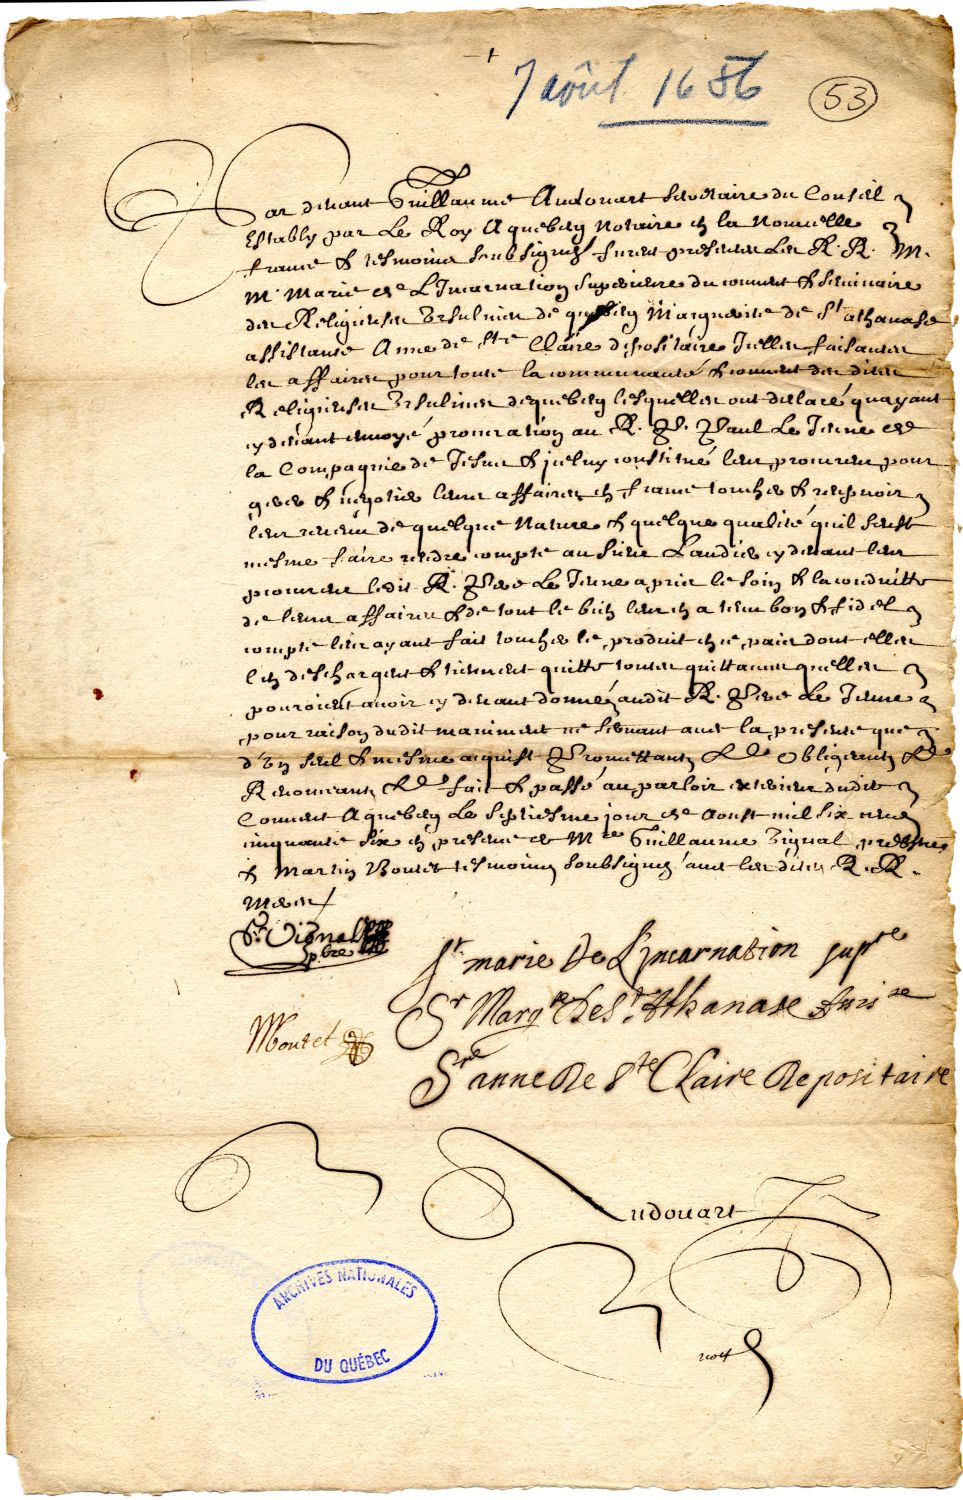 7 août 1656
53
Par devant Guillaume Audouart Secretaire du Conseil
Estably par Le Roy A quebecq Notaire en la Nouvelle
france & tesmoins soubsignez furent presentes Les R. R. M.
M. Marie de L'Incarnation superieure du couvent & seminaire
des Religieuses Ursulines de quebecq Marguerite de St athanase
assistante Anne de Ste Claire depositaire Icelles faisantes
les affaires pour toute la communauté & couvent des dites
Religieuses Ursulines de quebecq lesquelles ont declaré quayant
cy devant envoyé procuration au R. P. Paul Le Jeune de
la Compagnie de Jesus & jceluy constitué leur procureur pour
gerer & negotier leurs affaires en france toucher & recepvoir
leur revenu de quelque Nature & quelque qualité quil soust
mesme faire rendre compte au sieur Laudier cy devant leur
procureur ledit R. Pere Le Jeune a pris le soin & la conduitte
de leurs affaires & de tout le bien leur en a tenu bon & fidel
compte leur ayant fait toucher le produit en ce pais dont elles
len deschargent & tiennent quitte toutes quittances quelles
pouroient avoir cy devant donné audit R. Pere Le Jeune
pour raison dudit maniment ne servant avec la presente que
d'un seul & mesme acquist Promettant &c Obligeant &c
Renonceant &c fait & passé au parloir exterieur dudit
Couvent A quebecq Le Septiesme jour de Aoust mil six cens
cinquante six en presence de Me Guillaume Vignal prestre
& Martin Boutet tesmoins soubsignez avec les dites R. R.
Meres
G. Vignal
pbre
Sr marie De L'Jncarnation supre
Boutet
Sr Margte De St. Athanase
Sre anne De Ste Claire Depositaire
Audouart
nore
ARCHIVES NATIONALES
DU QUÉBEC